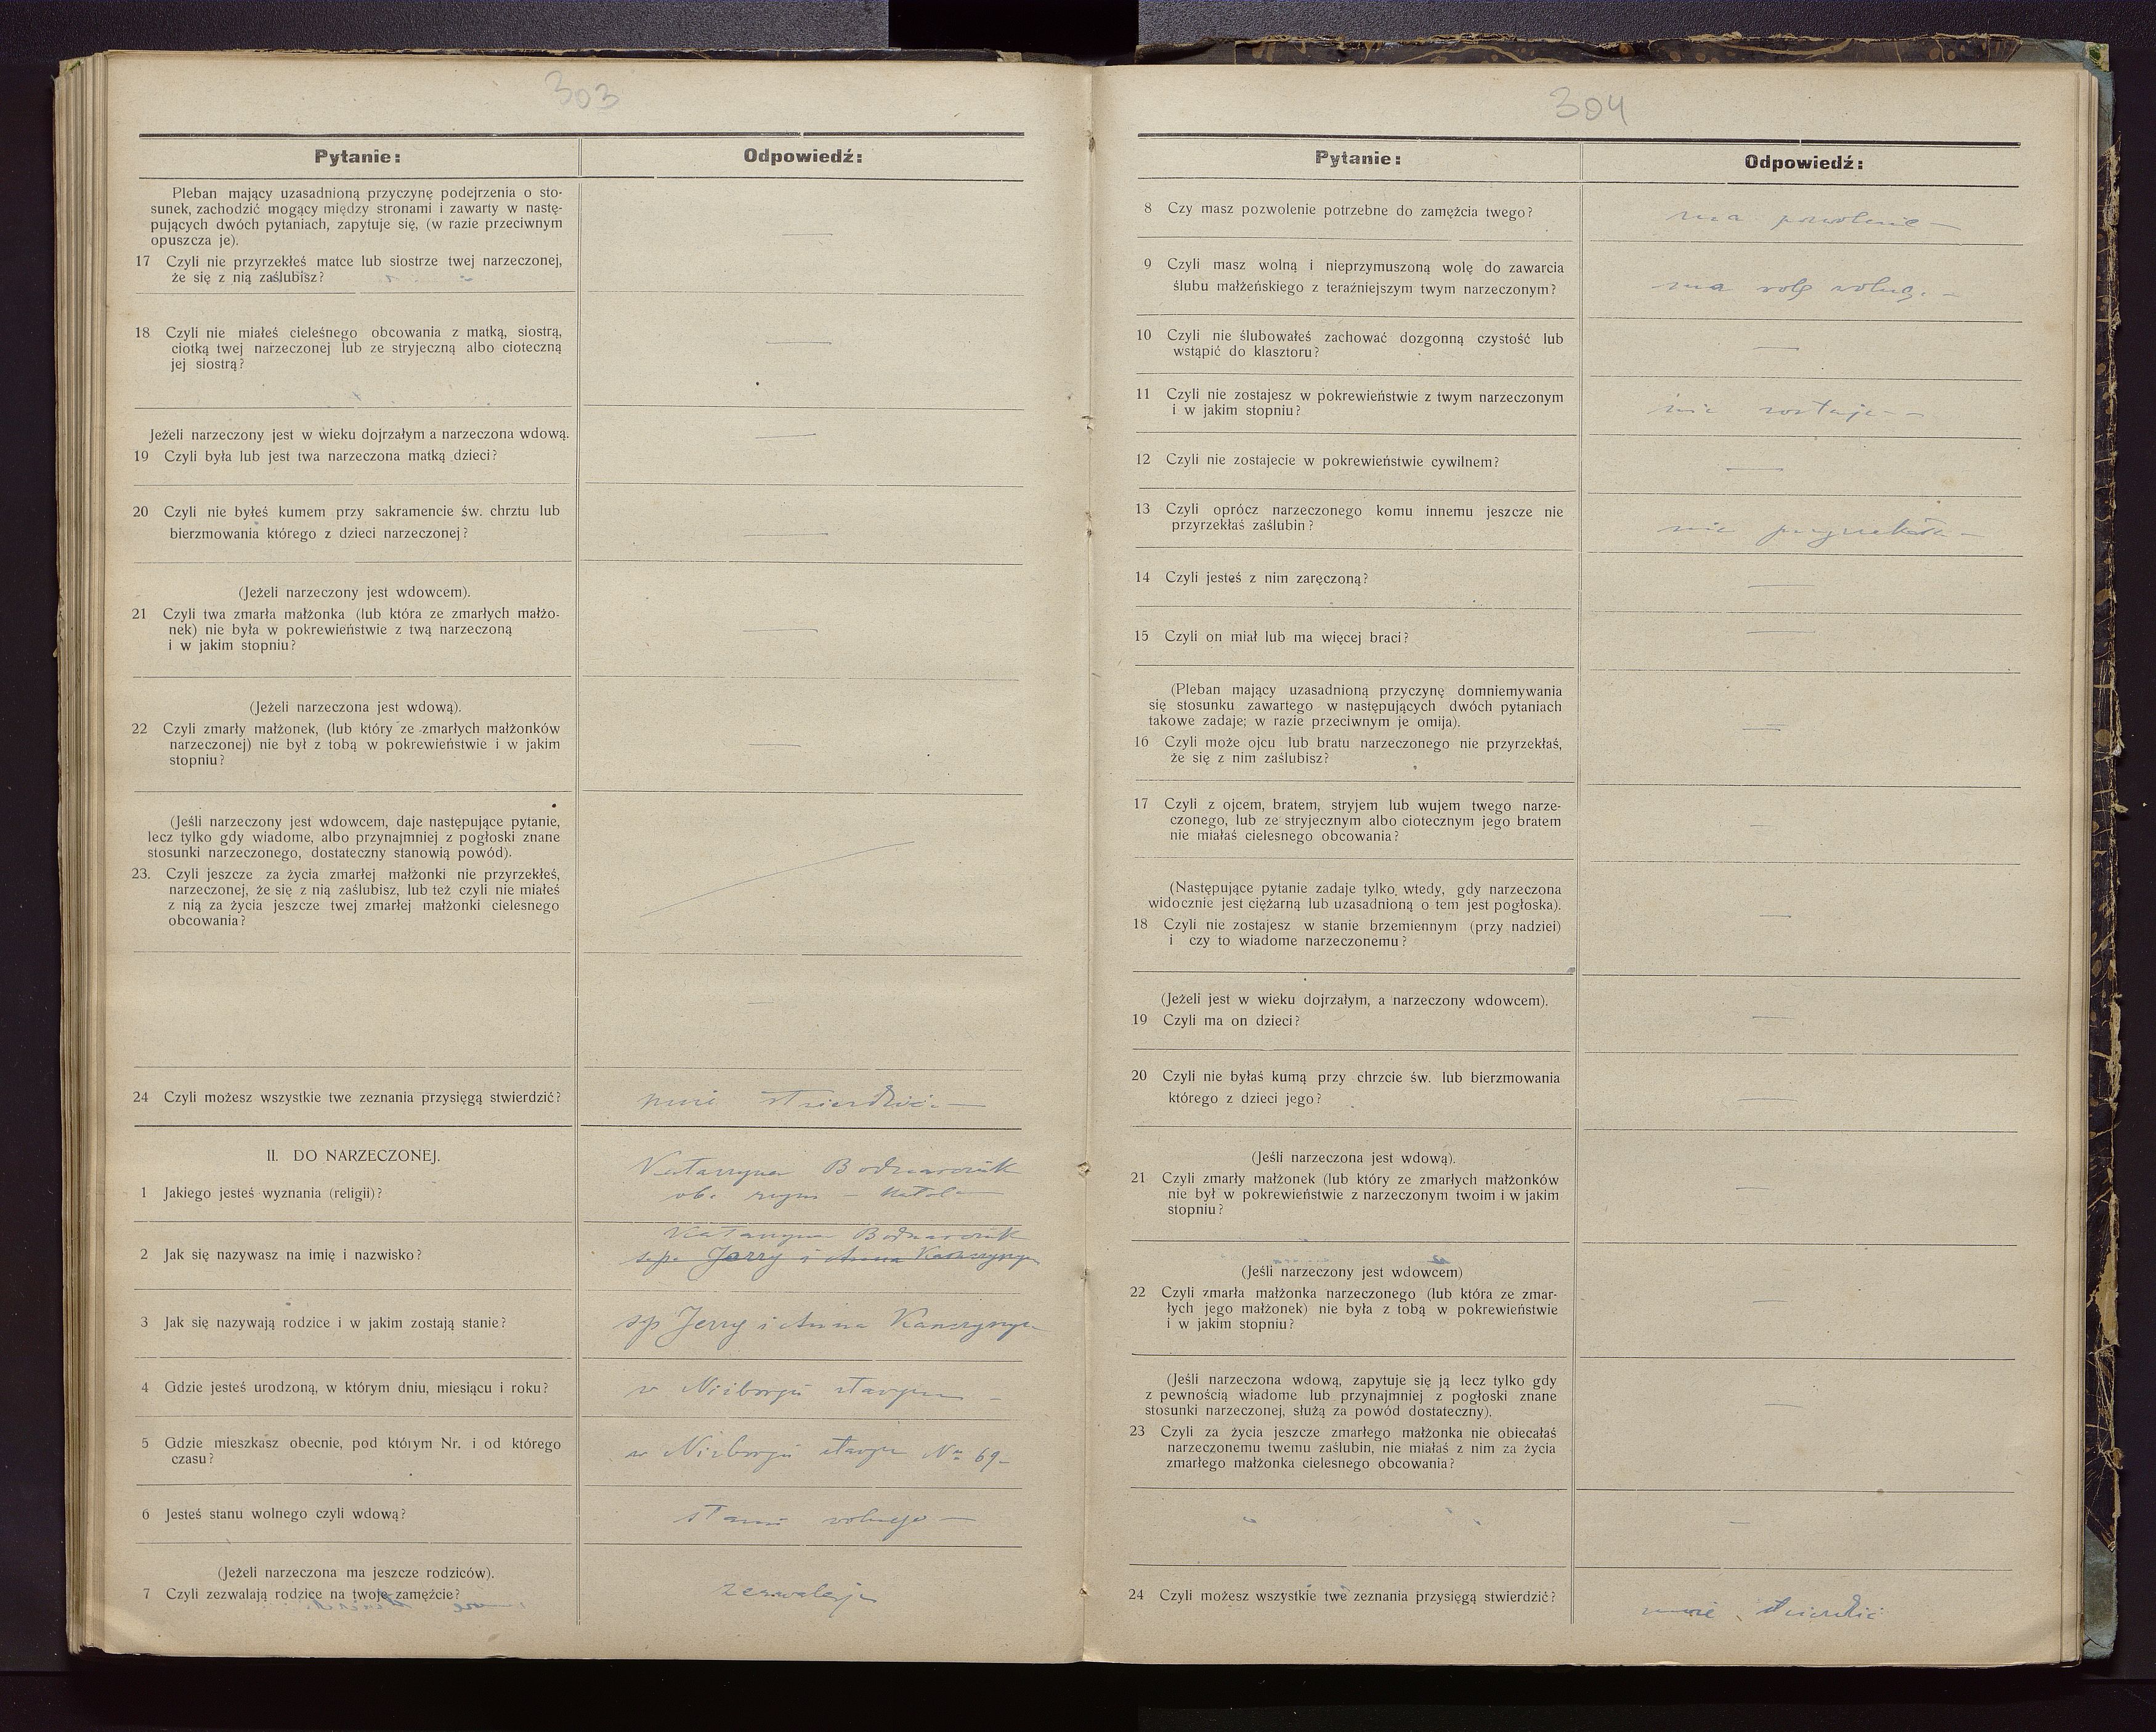 303
Pytanie:
Odpowiedź:
Pleban mający uzasadnioną przyczynę podejrzenia o sto-
sunek, zachodzić mogący między stronami i zawarty w nastę-
pujących dwóch pytaniach, zapytuje się, (w razie przeciwnym
opuszcza je).
17 Czyli nie przyrzekłeś matce lub siostrze twej narzeczonej,
że się z nią zaślubisz?
18 Czyli nie miałeś cieleśnego obcowania z matką, siostrą,
ciotką twej narzeczonej lub ze stryjeczną albo cioteczną
jej siostrą?
Jeżeli narzeczony jest w wieku dojrzałym a narzeczona wdową.
19 Czyli była lub jest twa narzeczona matką dzieci?
20 Czyli nie byłeś kumem przy sakramencie św. chrztu lub
bierzmowania którego z dzieci narzeczonej?
(Jeżeli narzeczony jest wdowcem).
21 Czyli twa zmarła małżonka (lub która ze zmarłych małżo-
nek) nie była w pokrewieństwie z twą narzeczoną
i w jakim stopniu?
(Jeżeli narzeczona jest wdową).
22 Czyli zmarły małżonek, (lub który ze zmarłych małżonków
narzeczonej) nie był z tobą w pokrewieństwie i w jakim
stopniu?
(Jeśli narzeczony jest wdowcem, daje następujące pytanie,
lecz tylko gdy wiadome, albo przynajmniej z pogłoski znane
stosunki narzeczonego, dostateczny stanowią powód).
23. Czyli jeszcze za życia zmarłej małżonki nie przyrzekłeś,
narzeczonej, że się z nią zaślubisz, lub też czyli nie miałeś
z nią za życia jeszcze twej zmarłej małżonki cielesnego
obcowania?
24 Czyli możesz wszystkie twe zeznania przysięgą stwierdzić?
stwierdzić. —
II. DO NARZECZONEJ.
1 Jakiego jesteś wyznania (religii)?
Katarzyna Bodnarczuk
2 Jak się nazywasz na imię i nazwisko?
Katarzyna Bodnarczuk
Jerzy i Anna
3 Jak się nazywają rodzice i w jakim zostają stanie?
sp Jerzy i Anna
4 Gdzie jesteś urodzoną, w którym dniu, miesiącu i roku?
w Niżborgu starym —
5 Gdzie mieszkasz obecnie, pod którym Nr. i od którego
czasu?
w Niżborgu starym No 69 —
6 Jesteś stanu wolnego czyli wdową?
stanu wolnego —
(Jeżeli narzeczona ma jeszcze rodziców).
7 Czyli zezwalają rodzice na twoje zamęźcie?
304
Pytanie:
Odpowiedź:
8 Czy masz pozwolenie potrzebne do zamężcia twego?
ma pozwolenie —
9 Czyli masz wolną i nieprzymuszoną wolę do zawarcia
ślubu małżeńskiego z teraźniejszym twym narzeczonym?
ma wolę wolną. —
10 Czyli nie ślubowałeś zachować dozgonną czystość lub
wstąpić do klasztoru?
11 Czyli nie zostajesz w pokrewieństwie z twym narzeczonym
i w jakim stopniu?
nie zostaje —
12 Czyli nie zostajecie w pokrewieństwie cywilnem?
13 Czyli oprócz narzeczonego komu innemu jeszcze nie
przyrzekłaś zaślubin?
nie przyrzekła —
14 Czyli jesteś z nim zaręczoną?
15 Czyli on miał lub ma więcej braci?
(Pleban mający uzasadnioną przyczynę domniemywania
się stosunku zawartego w następujących dwóch pytaniach
takowe zadaje; w razie przeciwnym je omija).
16 Czyli może ojcu lub bratu narzeczonego nie przyrzekłaś,
że się z nim zaślubisz?
17 Czyli z ojcem, bratem, stryjem lub wujem twego narze-
czonego, lub ze stryjecznym albo ciotecznym jego bratem
nie miałaś cielesnego obcowania?
(Następujące pytanie zadaje tylko wtedy, gdy narzeczona
widocznie jest ciężarną lub uzasadnioną o tem jest pogłoska).
18 Czyli nie zostajesz w stanie brzemiennym (przy nadziei)
i czy to wiadome narzeczonemu?
(Jeżeli jest w wieku dojrzałym, a narzeczony wdowcem).
19 Czyli ma on dzieci?
20 Czyli nie byłaś kumą przy chrzcie św. lub bierzmowania
którego z dzieci jego?
(Jeśli narzeczona jest wdową).
21 Czyli zmarły małżonek (lub który ze zmarłych małżonków
nie był w pokrewieństwie z narzeczonym twoim i w jakim
stopniu?
(Jeśli narzeczony jest wdowcem)
22 Czyli zmarła małżonka narzeczonego (lub która ze zmar-
łych jego małżonek) nie była z tobą w pokrewieństwie
i w jakim stopniu?
(Jeśli narzeczona wdową, zapytuje się ją lecz tylko gdy
z pewnością wiadome lub przynajmniej z pogłoski znane
stosunki narzeczonej, służą za powód dostateczny).
23 Czyli za życia jeszcze zmarłego małżonka nie obiecałaś
narzeczonemu twemu zaślubin, nie miałaś z nim za życia
zmarłego małżonka cielesnego obcowania?
24 Czyli możesz wszystkie twe zeznania przysięgą stwierdzić?
może stwierdzić